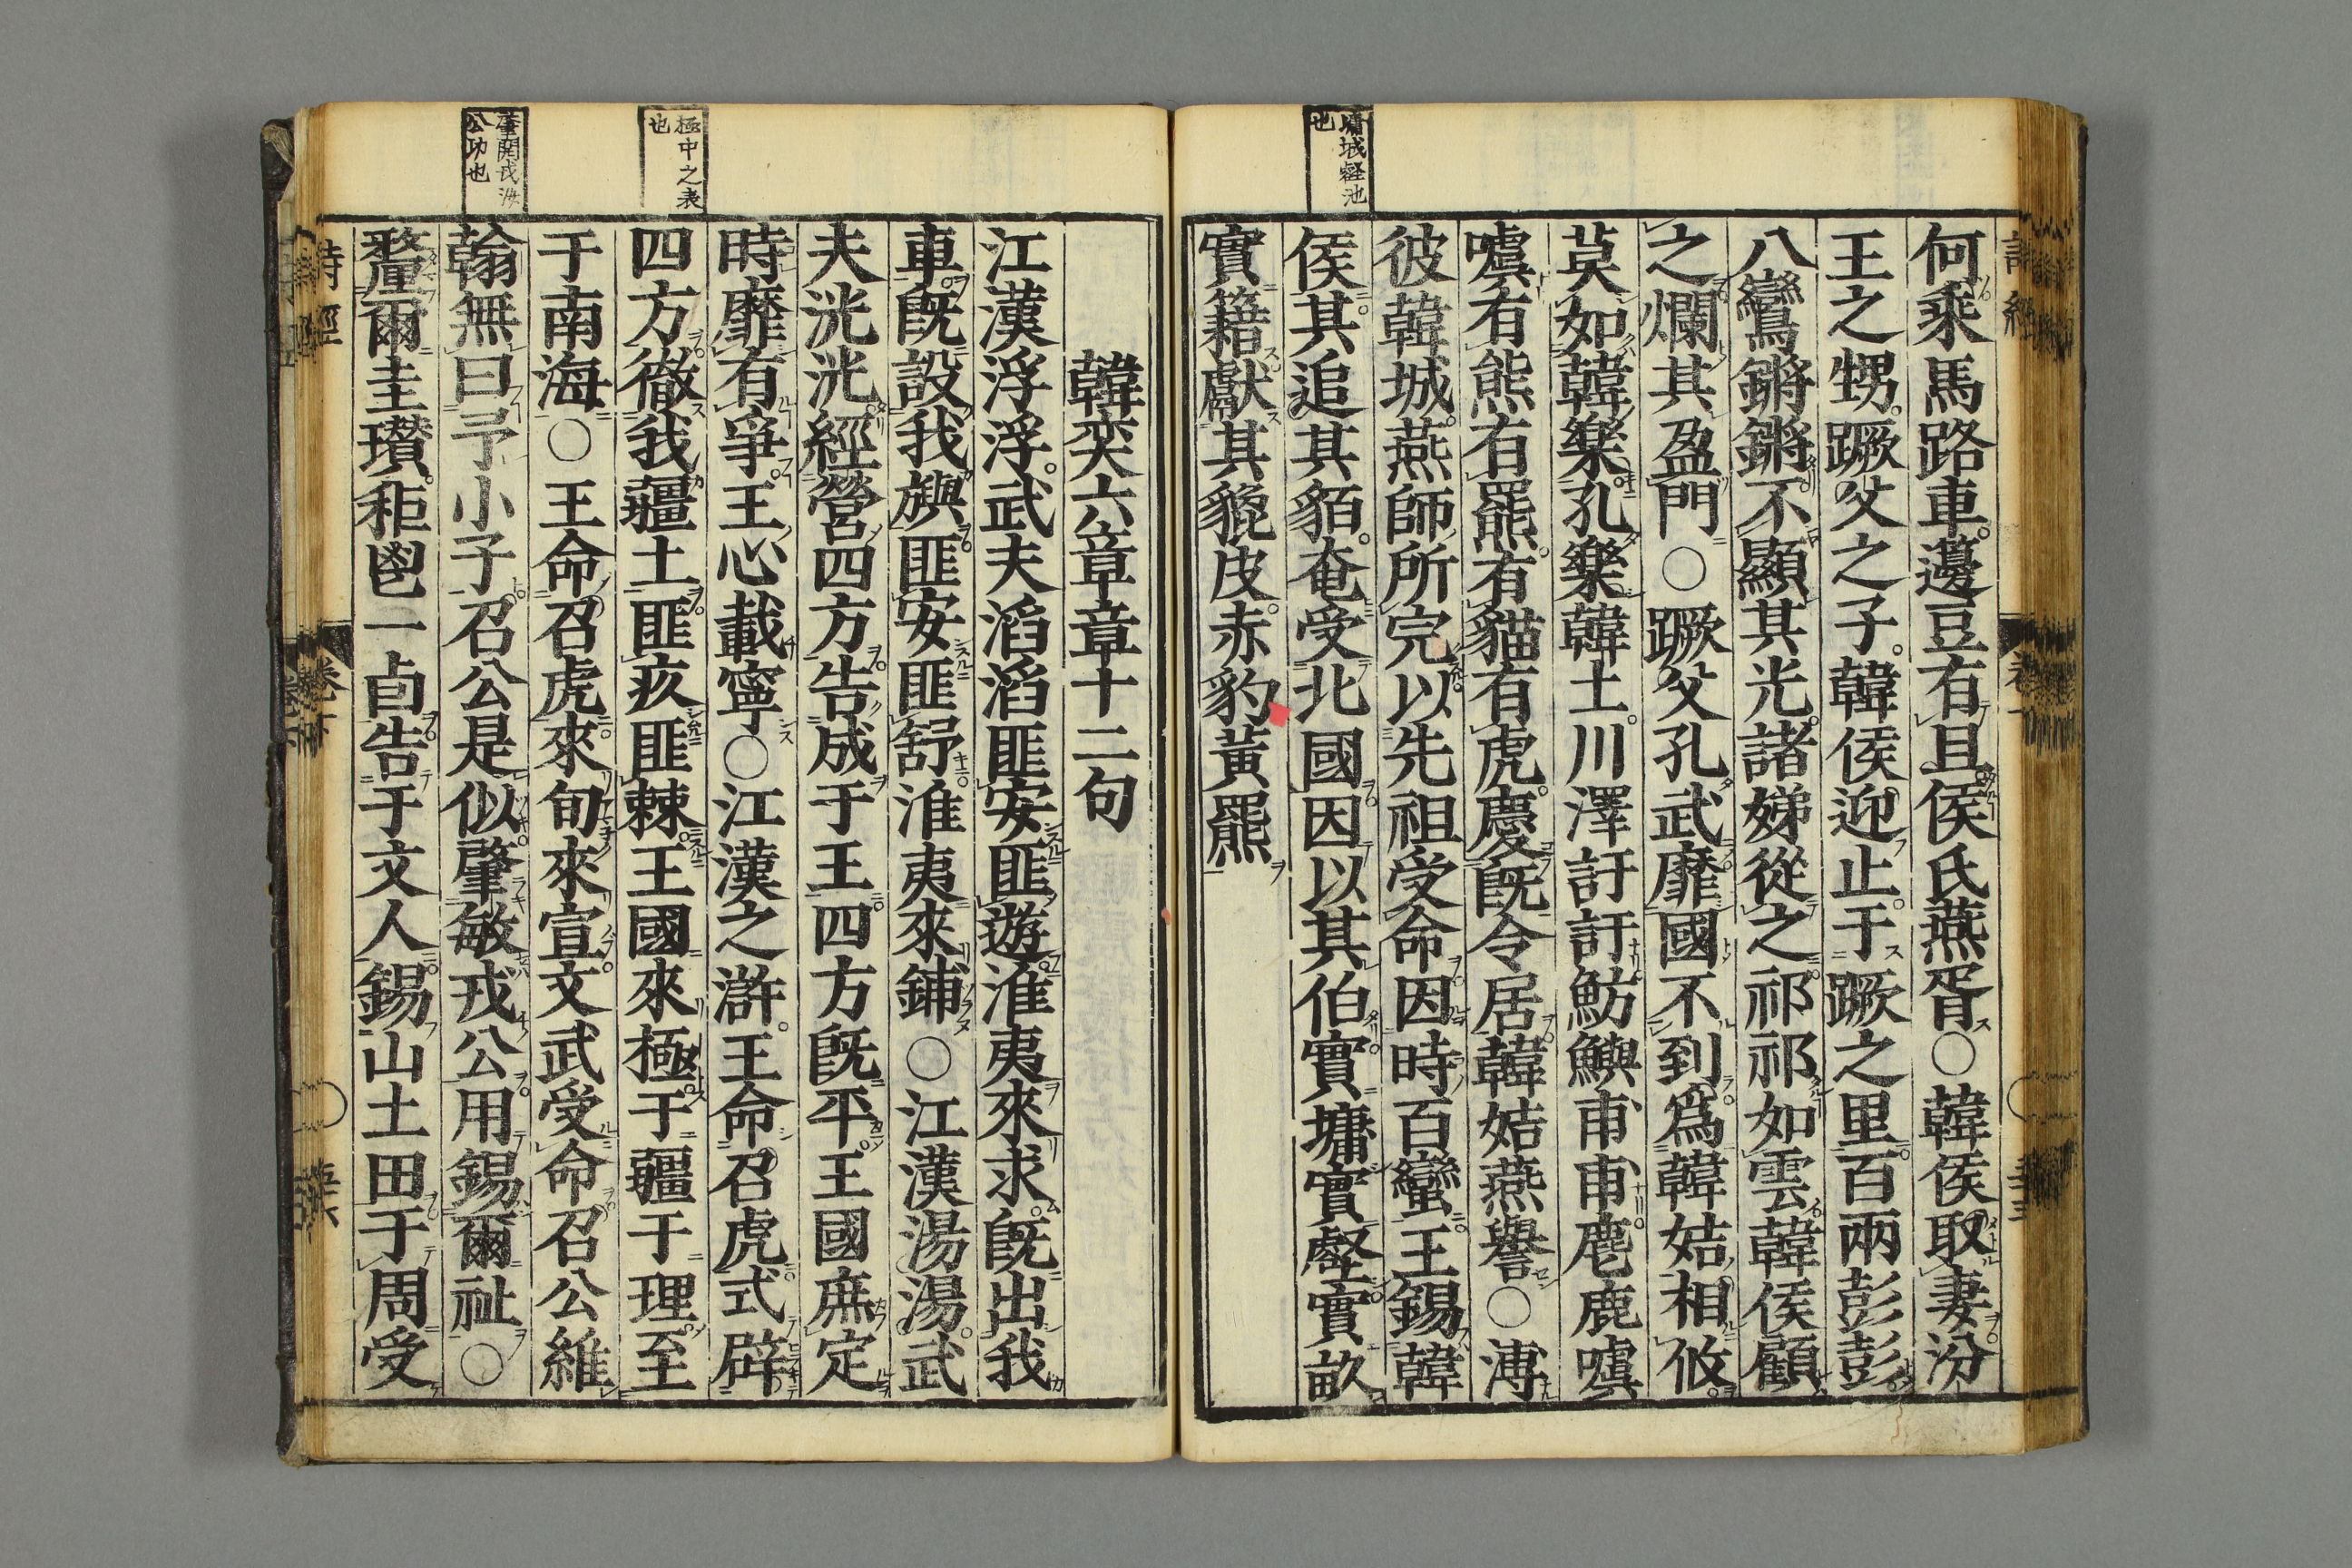 墉城壑池
也
何乘馬路車籩豆有且侯氏燕胥○韓侯取妻汾
王之甥蹶父之子韓侯迎止于蹶之里百兩彭彭
八鸞鏘鏘不顯其光諸娣從之祁祁如雲韓侯顧
之爛其盈門○蹶父孔武靡國不到爲韓姞相攸
莫如韓樂孔樂韓土川澤訏訏魴鱮甫甫麀鹿噳
噳有熊有羆有貓有虎慶既令居韓姞燕譽○溥
彼韓城燕師所完以先祖受命因時百蠻王錫韓
侯其追其貊奄受北國因以其伯實墉實壑實畝
實籍獻其貔皮赤豹黃羆
極中之表
也
肇開戎汝
公功也
韓奕六章章十二句
江漢浮浮武夫滔滔匪安匪遊淮夷來求既出我
車既設我旟匪安匪舒淮夷來鋪○江漢湯湯武
夫洸洸經營四方告成于王四方既平王國庶定
時靡有爭王心載寧○江漢之滸王命召虎式辟
四方徹我疆土匪疚匪棘王國來極于疆于理至
于南海○王命召虎來旬來宣文武受命召公維
翰無曰予小子召公是似肇敏戎公用錫爾祉○
釐爾圭瓚秬鬯一卣告于文人錫山土田于周受
詩經
卷下